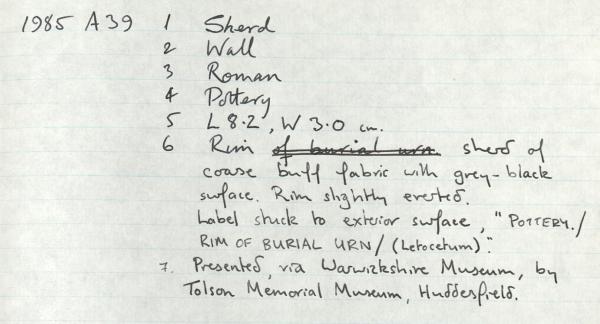 1985 A39 1 Sherd
2 Wall
3 Roman
4 Pottery
5 L 8.2, W 3.0 cm.
6 Rim of burial urn sherd of
coarse buff fabric with grey-black
surface. Rim slightly everted.
Label stuck to exterior surface, "POTTERY./
RIM OF BURIAL URN/ (Letocetum)".
7. Presented, via Warwickshire Museum, by
Tolson Memorial Museum, Huddersfield.